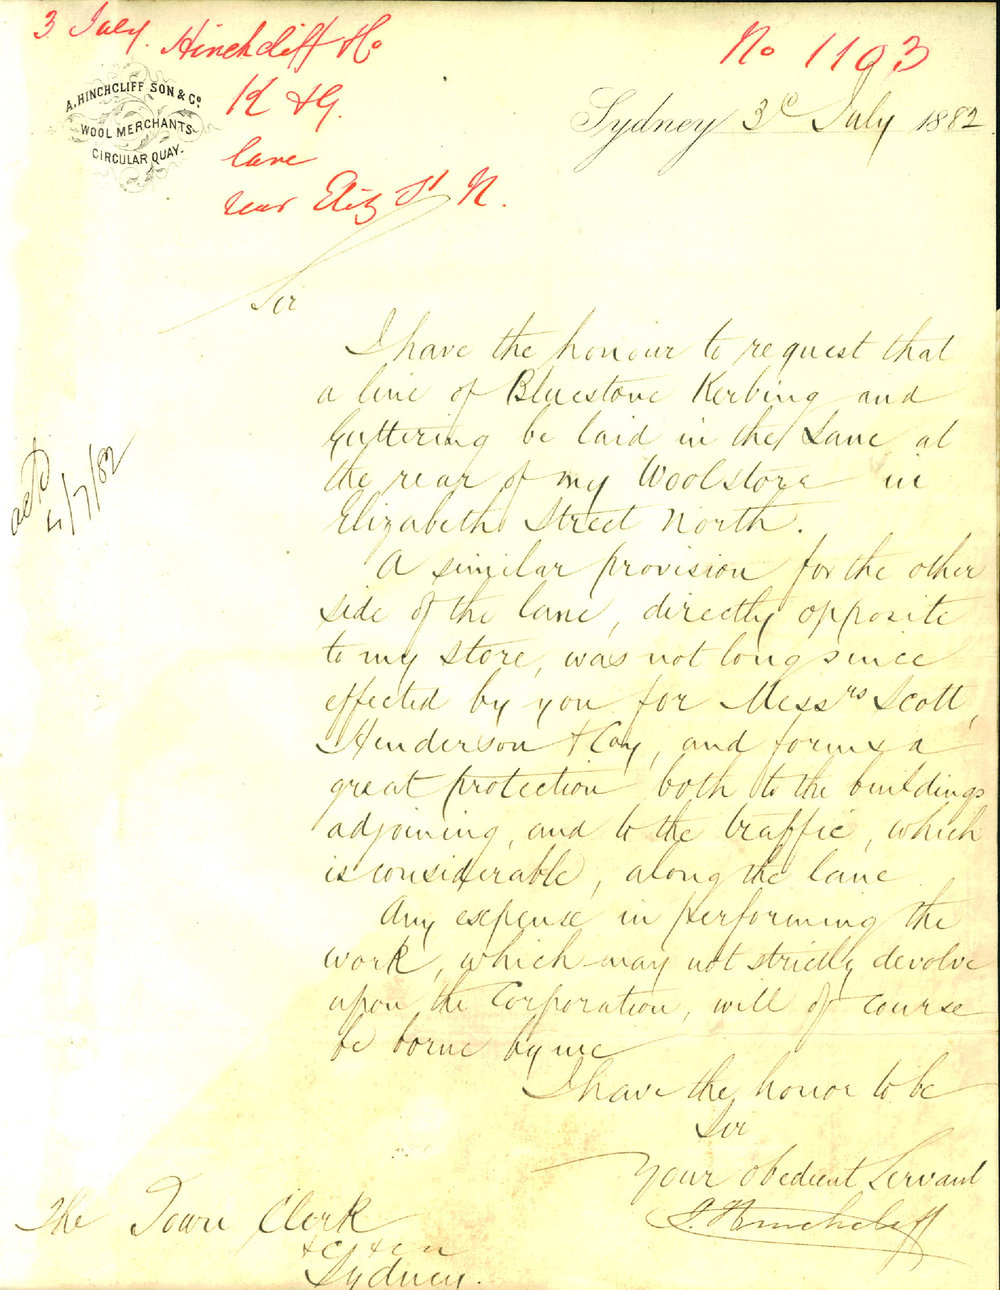 3 July. Hinchcliff Ho
No 1103
K & G.
lane
rear Eliz St N.
A. HINCHCLIFF SON & Co
WOOL MERCHANTS
CIRCULAR QUAY.
Sydney 3d July 1882
Sir
I have the honour to request that
a line of Bluestone Kerbing and
Guttering be laid in the Lane at
the rear of my Woolstore in
Elizabeth Street North.
A similar provision for the other
side of the lane, directly opposite
to my store, was not long since
effected by you for Messrs Scott,
Henderson & Coy, and forms a
great protection both to the buildings
adjoining, and to the traffic, which
is considerable, along the lane
Any expense in performing the
work, which may not strictly devolve
upon the Corporation, will of course
be borne by me
I have the honor to be
Sir
Your obedient Servant
Hinchcliff
ackd
4/7/82
The Town Clerk
&c &c
Sydney.